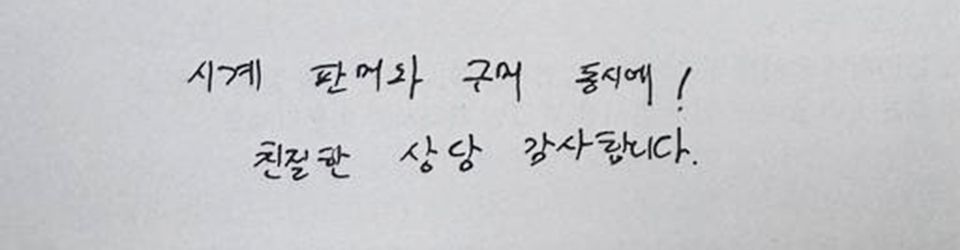 시계 판매와 구매 동시에!
친절한 상당 감사합니다.